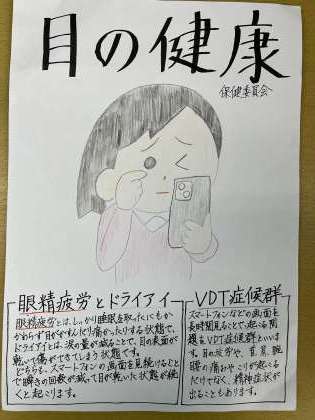 目の健康
保健委員会
眼精疲労とドライアイ
眼精疲労とは、しっかり睡眠を取ったにもか
かわらず目がかすんだり痛かったりする状態で、
ドライアイとは、涙の量が減ることで、目の表面が
乾いて傷ができてしまう状態です。
どちらも、スマートフォンの画面を見続けること
で瞬きの回数が減って目が乾いた状態が続
くと起こります。
VDT症候群
スマートフォンなどの画面を
長時間見ることで起こる問
題をVDT症候群といいま
す。目の疲労や、首、肩、腕
腰の痛みやこりが起こる
だけでなく、精神症状が
出ることもあります。